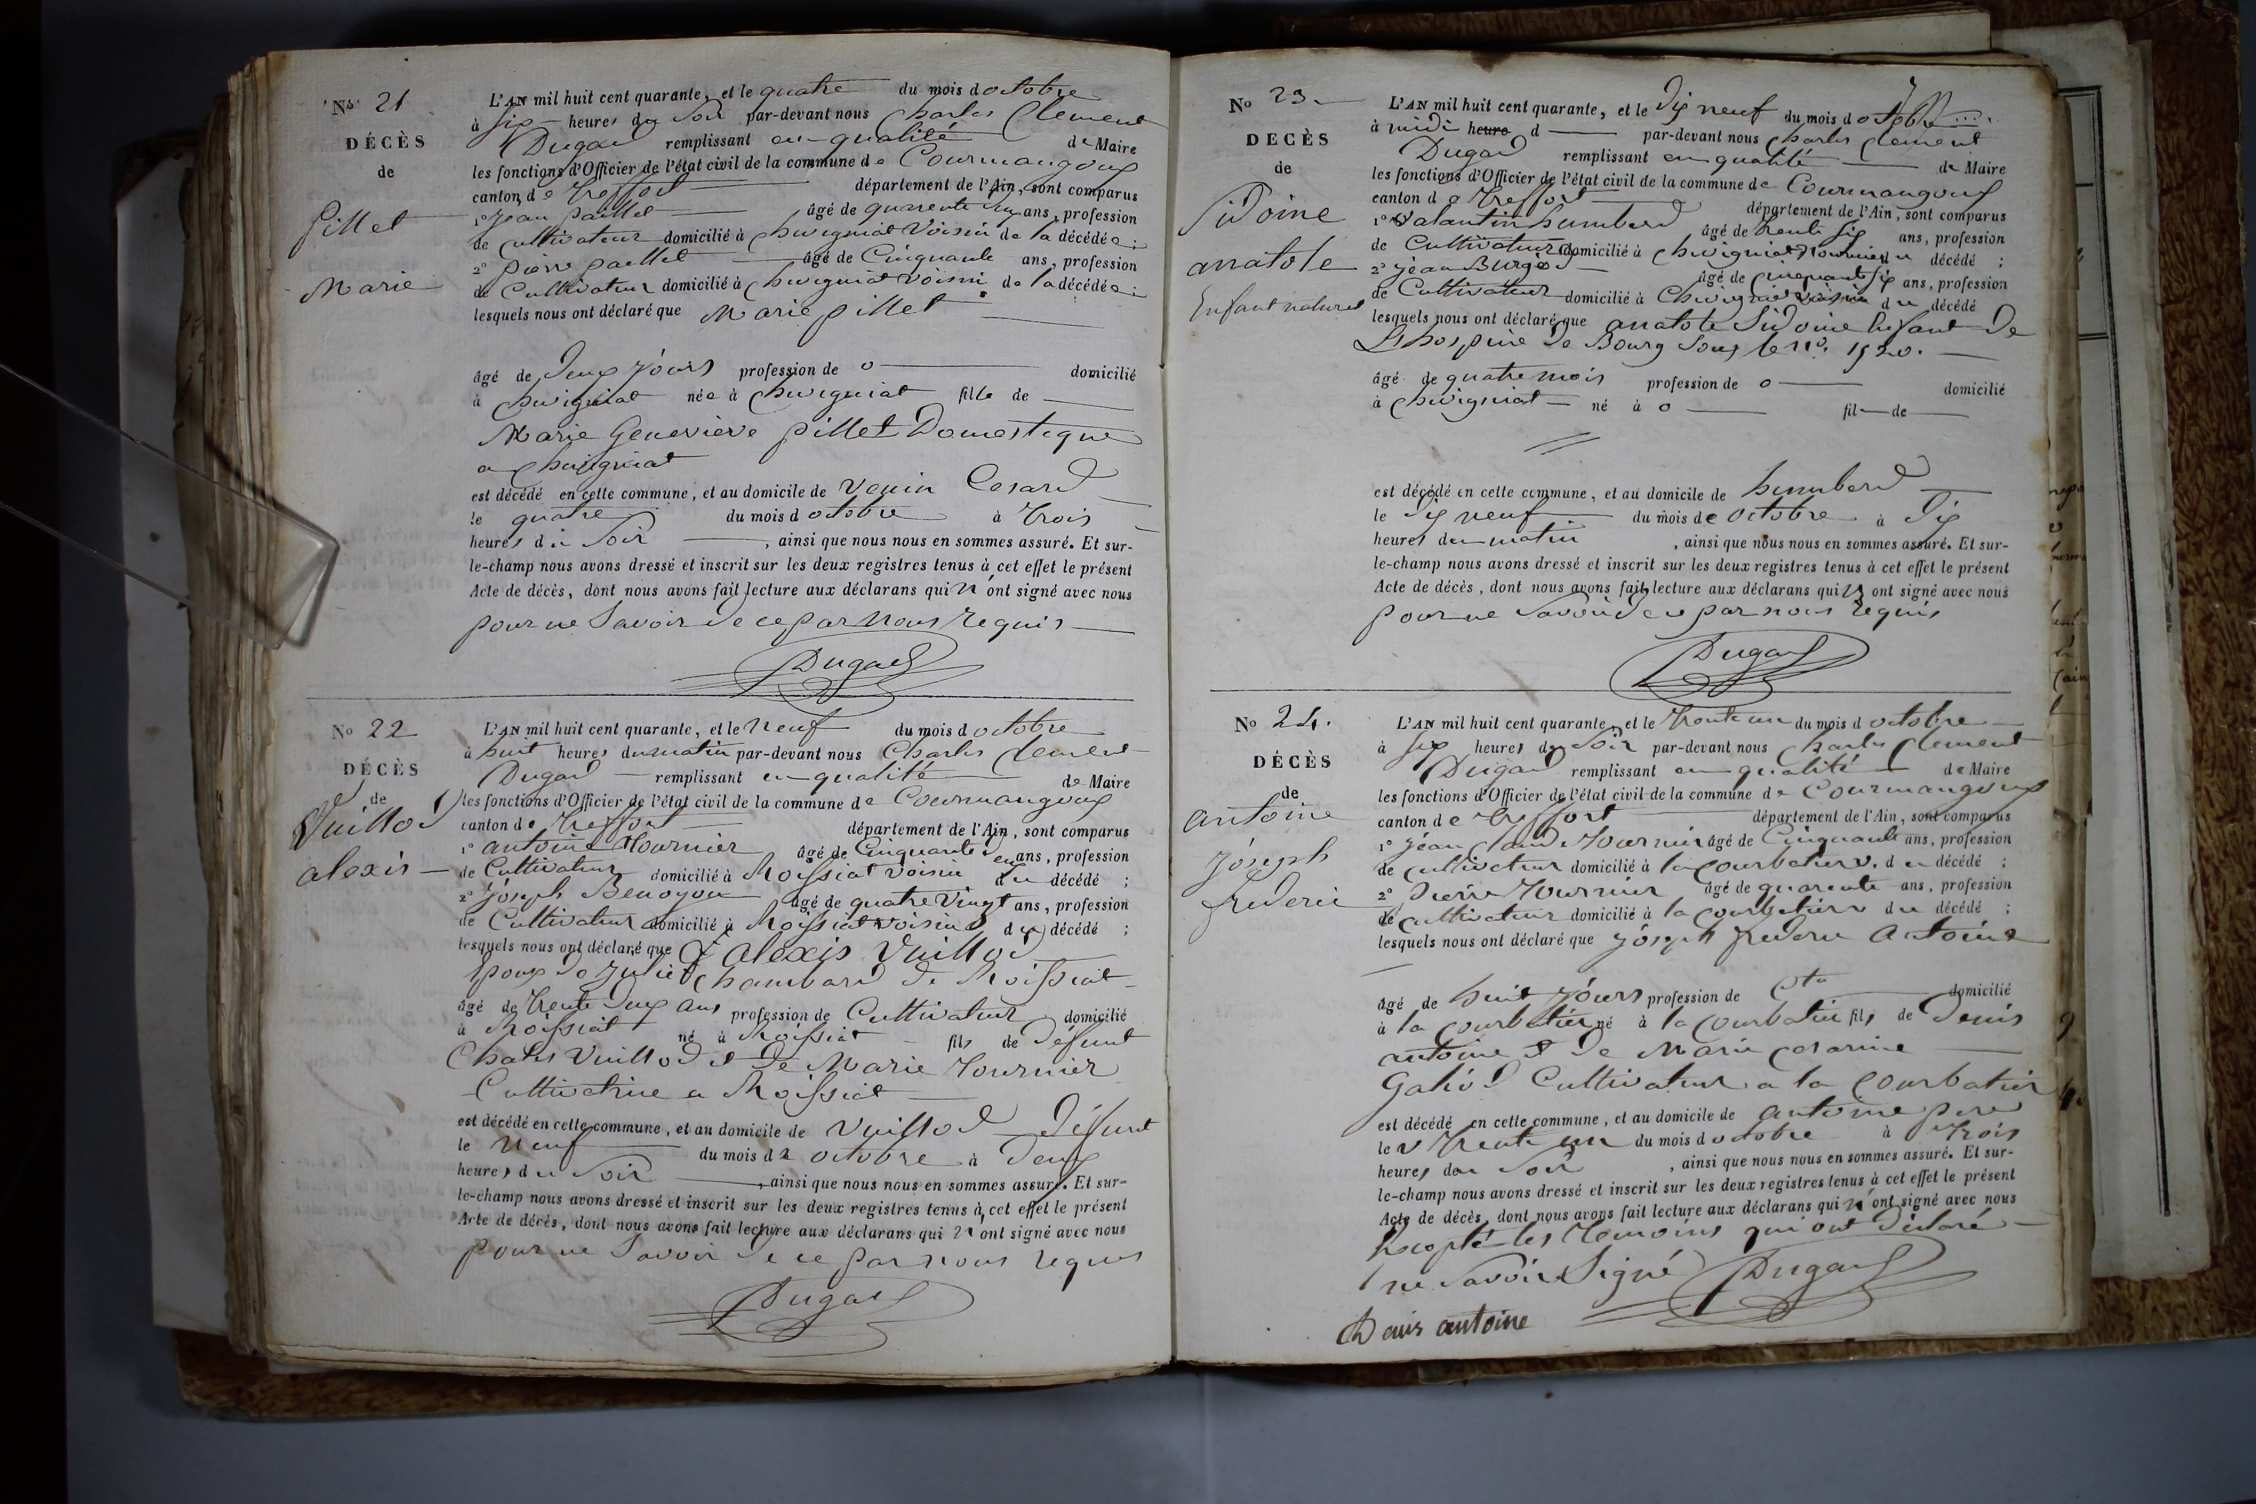 No 21
DÉCÈS
de
Pillet
Marie
L'AN mil huit cent quarante, et le quatre du mois d octobre
à six heures du soir par-devant nous Charles Clement
Dugad remplissant en qualité de Maire
les fonctions d'Officier de l'état civil de la commune de Courmangoux
canton de Treffort département de l'Ain, sont comparus
1° Jean paillet âgé de quarente ans, profession
de Cultivateur domicilié à Chevigniat voisin de la décédée ;
2° pierre paillet âgé de Cinquante ans, profession
de Cultivateur domicilié à Chevigniat voisin de la décédée ;
lesquels nous ont déclaré que Marie pillet
âgé de deux jours profession de 0 domicilié
à Chevigniat née à Chevigniat fille de
Marie Geneviève pillet Domestique
a Chevigniat
est décédé en cette commune, et au domicile de Cesard
le quatre du mois d octobre à trois
heures du soir , ainsi que nous nous en sommes assuré. Et sur-
le-champ nous avons dressé et inscrit sur les deux registres tenus à cet effet le présent
Acte de décès, dont nous avons fait lecture aux déclarans qui n'ont signé avec nous
pour ne savoir de ce par nous requis
Dugad
No 22
DÉCÈS
de
Vuillod
alexis
L'AN mil huit cent quarante, et le neuf du mois d octobre
à huit heures du matin par-devant nous Charles Clement
Dugad remplissant en qualité de Maire
les fonctions d'Officier de l'état civil de la commune de Courmangoux
canton de Treffort département de l'Ain, sont comparus
1° antoine Tournier âgé de Cinquante deux ans, profession
de Cultivateur domicilié à Roissiat voisin du décédé ;
2° Joseph Benoyon âgé de quatre vingt ans, profession
de Cultivateur domicilié à Roissiat voisin du décédé ;
lesquels nous ont déclaré que alexis Vuillod
Epoux de Julie Chambard de Roissiat
âgé de trente deux ans profession de Cultivateur domicilié
à Roissiat né à Roissiat fils de défunt
Charles Vuillod et de Marie Tournier
Cultivatrice a Roissiat
est décédé en cette commune, et au domicile de Vuillod Défunt
le neuf du mois de octobre à deux
heures du soir , ainsi que nous nous en sommes assuré. Et sur-
le-champ nous avons dressé et inscrit sur les deux registres tenus à cet effet le présent
Acte de décès, dont nous avons fait lecture aux déclarans qui n'ont signé avec nous
pour ne savoir de ce par nous requis
Dugad
No 23
DÉCÈS
de
Sidoine
anatole
Enfant naturel
L'AN mil huit cent quarante, et le dix neuf du mois d octobre
à midi heure d par-devant nous Charles Clement
Dugad remplissant en qualité de Maire
les fonctions d'Officier de l'état civil de la commune de Courmangoux
canton de Treffort département de l'Ain, sont comparus
1° Valantin humberd âgé de trente six ans, profession
de Cultivateur domicilié à Chevigniat du décédé ;
2° Jean Burgod âgé de cinquante six ans, profession
de Cultivateur domicilié à Chevigniat voisin du décédé
lesquels nous ont déclaré que anatole Sidoine Enfant de
Lhospice de Bourg sous le no. 1520.
âgé de quatre mois profession de 0 domicilié
à Chevigniat né à 0 fil de
est décédé en cette commune, et au domicile de humberd
le dix neuf du mois de octobre à dix
heures du matin , ainsi que nous nous en sommes assuré. Et sur-
le-champ nous avons dressé et inscrit sur les deux registres tenus à cet effet le présent
Acte de décès, dont nous avons fait lecture aux déclarans qui n'ont signé avec nous
pour ne savoir de ce par nous requis
Dugad
No 24.
DÉCÈS
de
antoine
Joseph
frederic
L'AN mil huit cent quarante, et le trente un du mois d octobre
à six heures du soir par-devant nous Charles Clement
Dugad remplissant en qualité de Maire
les fonctions d'Officier de l'état civil de la commune de Courmangoux
canton de Treffort département de l'Ain, sont comparus
1° Jean Claude Tournier âgé de Cinquante ans, profession
de cultivateur domicilié à la courbatier v. du décédé ;
2° Pierre Tournier âgé de quarente ans, profession
de cultivateur domicilié à la courbatier v du décédé ;
lesquels nous ont déclaré que Joseph frederic Antoine
âgé de huit jours profession de domicilié
à la courbatier né à la courbatier fils de Denis
antoine et de Marie cesarine
Cultivateur a la courbatier
est décédé en cette commune, et au domicile de antoine pere
le trente un du mois d octobre à trois
heures du soir , ainsi que nous nous en sommes assuré. Et sur-
le-champ nous avons dressé et inscrit sur les deux registres tenus à cet effet le présent
Acte de décès, dont nous avons fait lecture aux déclarans qui n'ont signé avec nous
Excepté les temoins qui ont déclaré
ne savoir Signé Dugad
Denis antoine